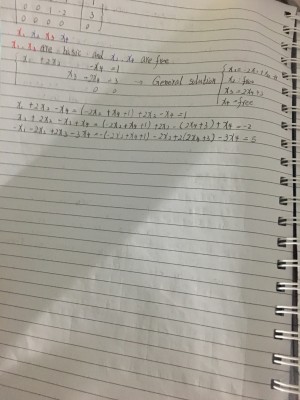 0 0 1 -2 | 3
0 0 0 0 | 0
x₁ x₂ x₃ x₄
x₁, x₃ are basic and x₂, x₄ are free.
x₁ + 2x₂ - x₄ = 1
x₃ - 2x₄ = 3 → General solution
0 = 0
x₁ = -2x₂ + x₄ + 1
x₂ = free
x₃ = 2x₄ + 3
x₄ = free
x₁ + 2x₂ - x₄ = (-2x₂ + x₄ + 1) + 2x₂ - x₄ = 1
x₁ + 2x₂ - x₃ + x₄ = (-2x₂ + x₄ + 1) + 2x₂ - (2x₄ + 3) + x₄ = -2
-x₁ - 2x₂ + 2x₃ - 3x₄ = -(-2x₂ + x₄ + 1) - 2x₂ + 2(2x₄ + 3) - 3x₄ = 5